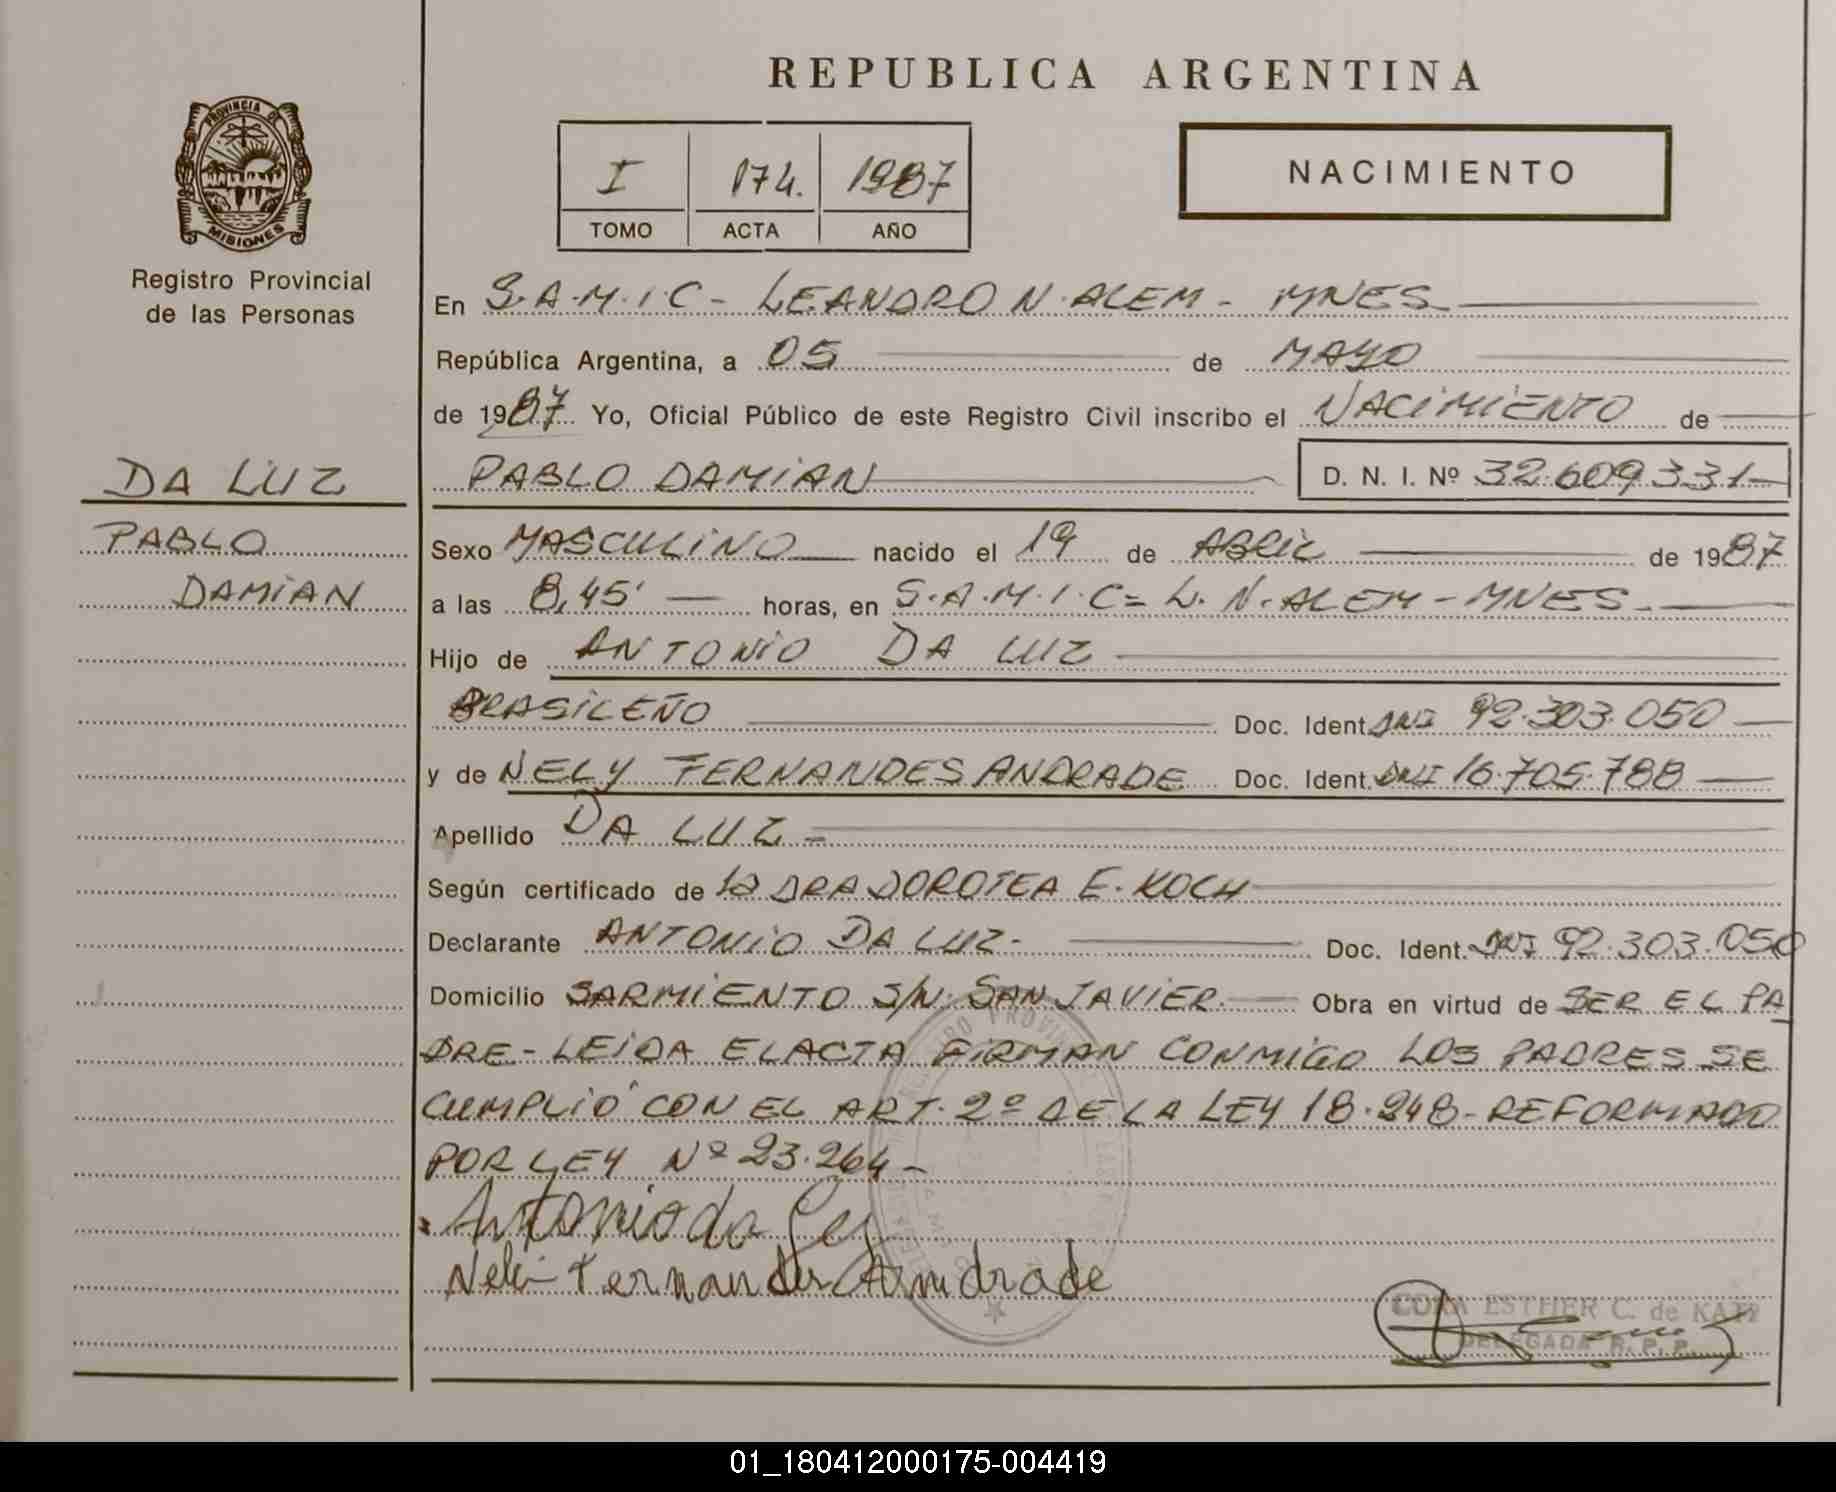 REPUBLICA ARGENTINA
PROVINCIA DE
MISIONES
Registro Provincial
de las Personas
I 174. 1987
TOMO ACTA AÑO
NACIMIENTO
En S.A.M.I.C - LEANDRO N. ALEM - MNES
República Argentina, a 05 de MAYO
de 1987 Yo, Oficial Público de este Registro Civil inscribo el NACIMIENTO de
PABLO DAMIAN D. N. I. Nº 32.609.331-
DA LUZ
PABLO
DAMIAN
Sexo MASCULINO nacido el 19 de ABRIL de 1987
a las 8,45' horas, en S.A.M.I.C= L. N. ALEM - MNES.
Hijo de ANTONIO DA LUZ
BRASILEÑO Doc. Ident. DNI 92.303.050
y de NELY FERNANDES ANDRADE Doc. Ident. DNI 16.705.788
Apellido DA LUZ -
Según certificado de la DRA DOROTEA E. KOCH
Declarante ANTONIO DA LUZ- Doc. Ident. DNI 92.303.050
Domicilio SARMIENTO S/N. SAN JAVIER. Obra en virtud de SER EL PA
DRE - LEIDA EL ACTA FIRMAN CONMIGO LOS PADRES SE
CUMPLIÓ CON EL ART. 2º DE LA LEY 18.248 - REFORMADO
POR LEY Nº 23.264 -
Antonio da Luz
Neli Fernandes Andrade
CORA ESTHER C. de KATZ
DELEGADA R. P. P.
01_180412000175-004419